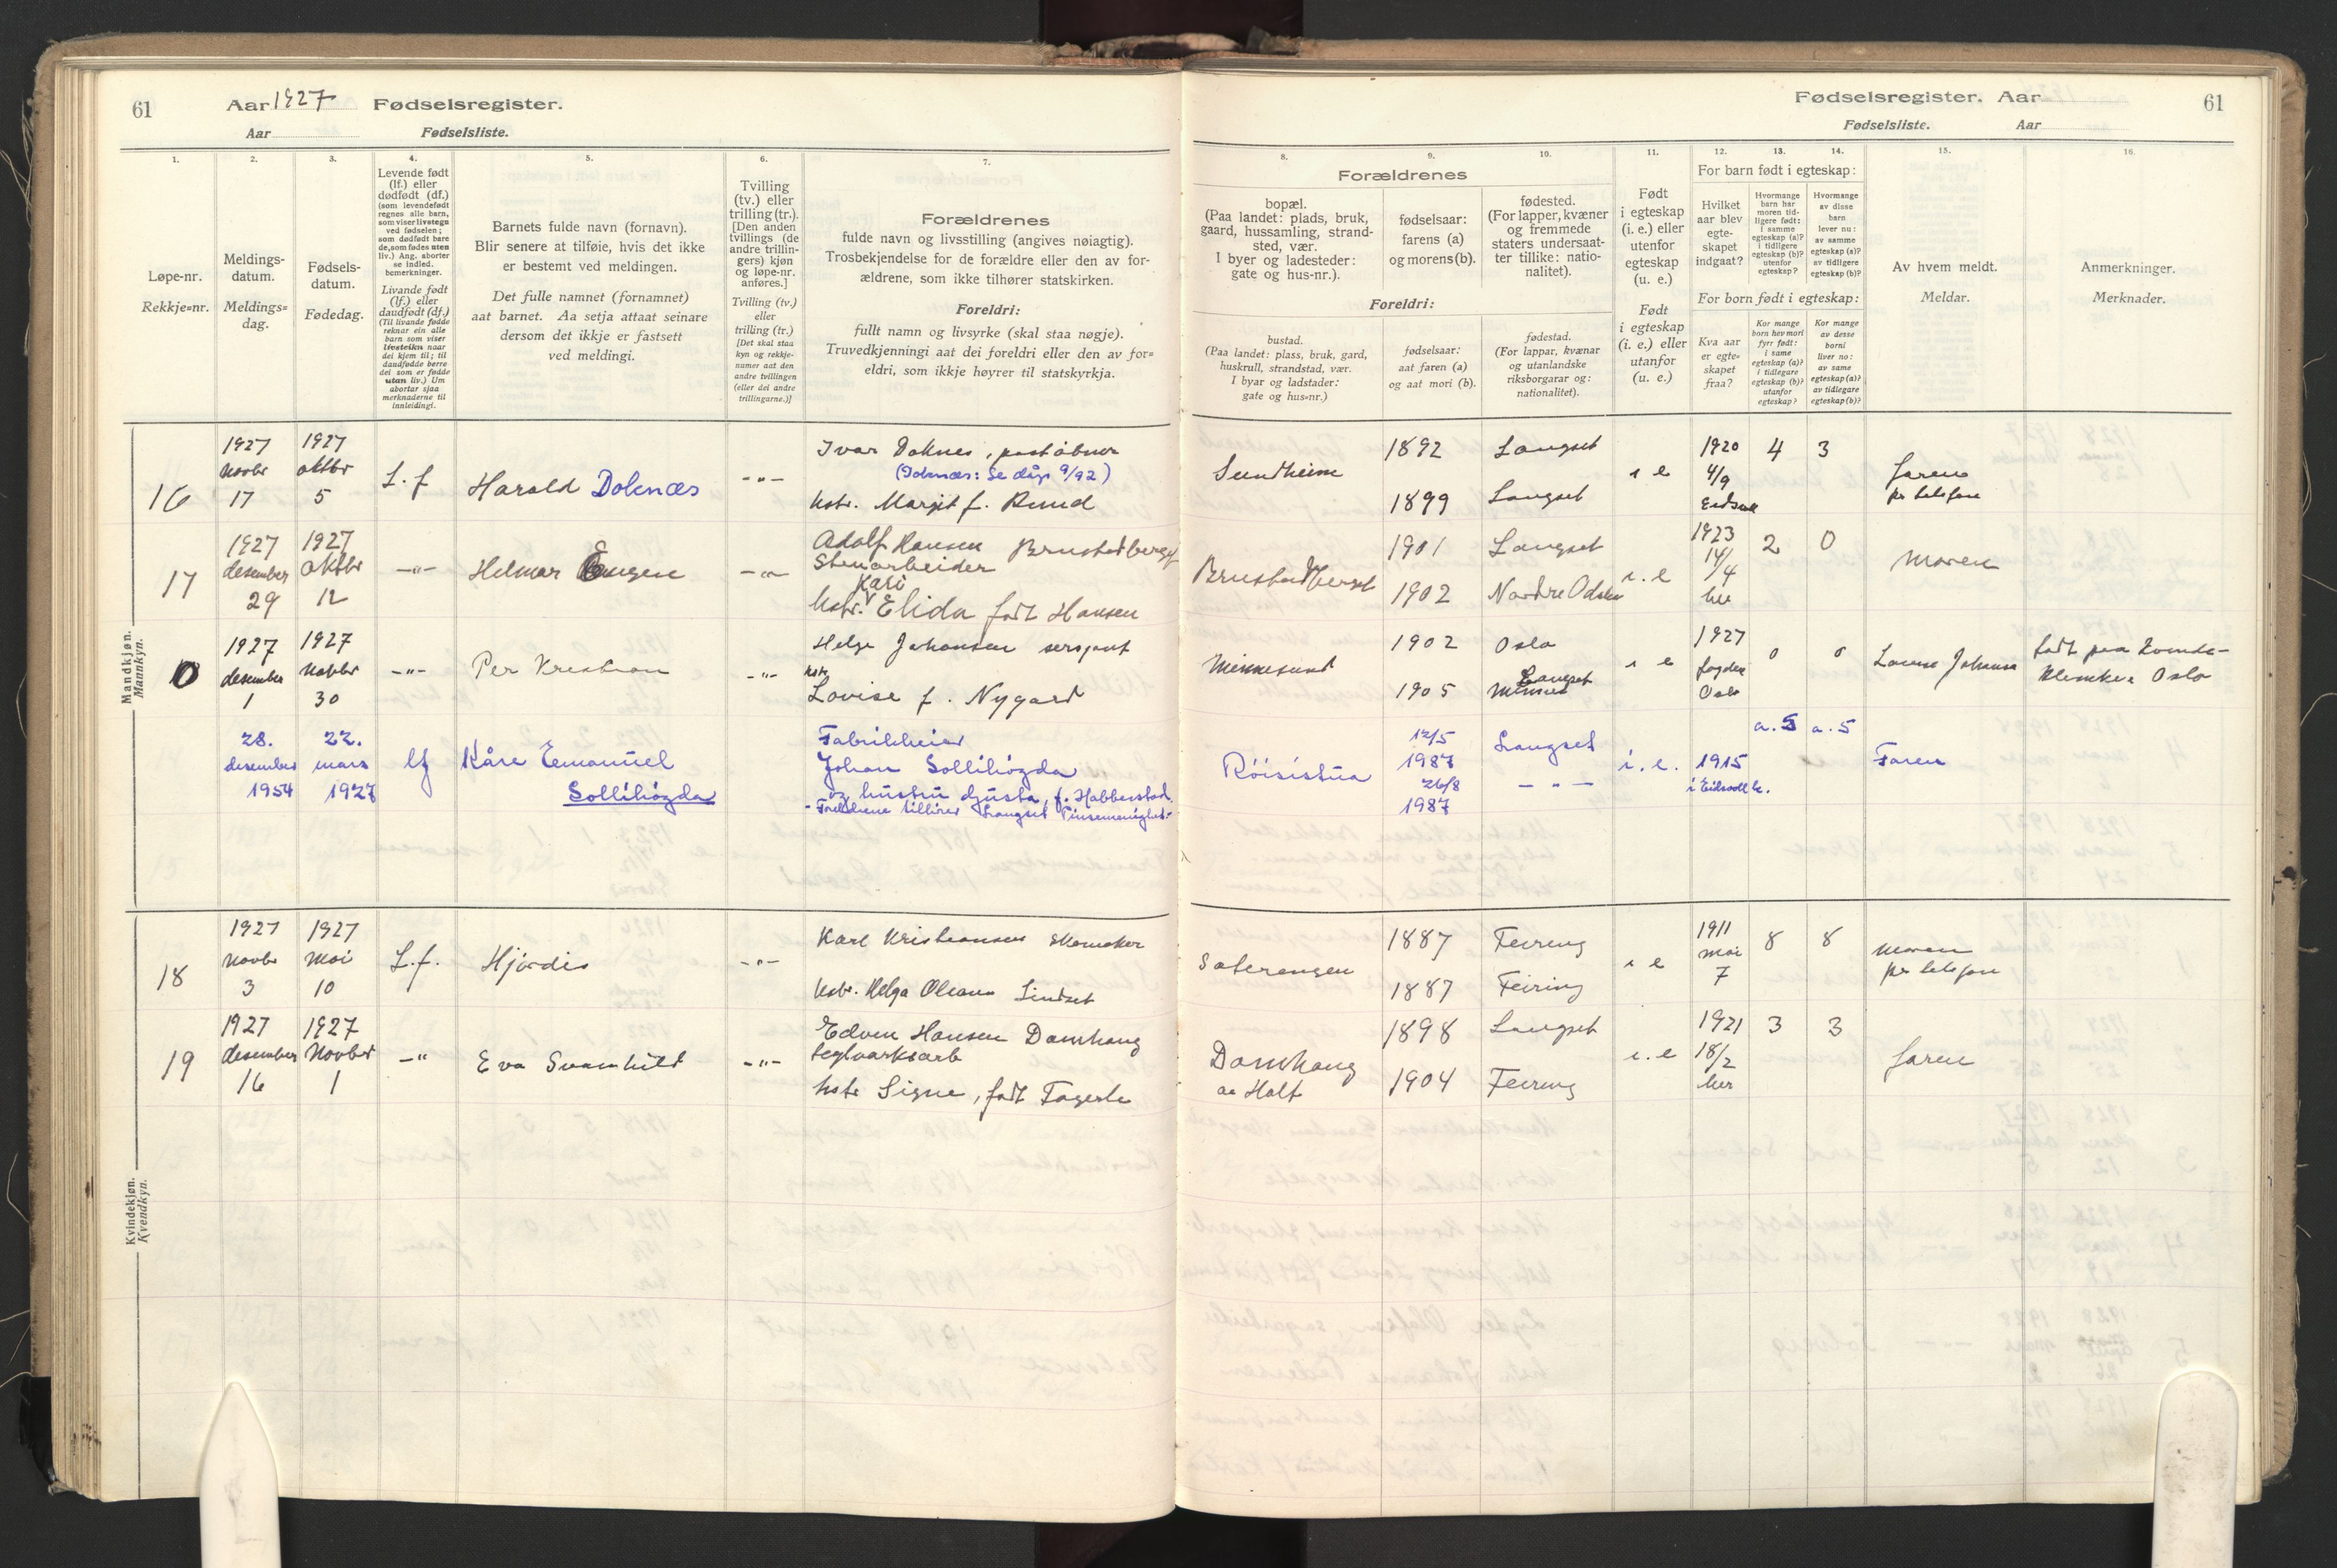 61
Aar 1927 Fødselsregister.
Aar Fødselsliste.
1.
Løpe-nr.
Rekkje=nr.
2.
Meldings-
datum.
Meldings=
dag.
3.
Fødsels-
datum.
Fødedag.
4.
Levende født
(lf.) eller
dødfødt (df.)
(som levendefødt
regnes alle barn,
som viser livstegn
ved fødselen;
som dødfødt bare
de, som fødes uten
liv.) Ang. aborter
se indled.
bemerkninger.
Livande født
(lf.) eller
daudfødt (df.)
(Til livande fødde
reknar ein alle
barn som viser
livsteikn naar
dei kjem til; til
daudfødde berre
dei som er fødde
utan liv.) Um
abortar sjaa
merknaderne til
innleidingi.
5.
Barnets fulde navn (fornavn).
Blir senere at tilføie, hvis det ikke
er bestemt ved meldingen.
Det fulle namnet (fornamnet)
aat barnet. Aa setja attaat seinare
dersom det ikkje er fastsett
ved meldingi.
6.
Tvilling
(tv.) eller
trilling (tr.).
[Den anden
tvillings (de
andre trillin-
gers) kjøn
og løpe-nr.
anføres.]
Tvilling (tv.)
eller
trilling (tr.)
[Det skal staa
kyn og rekkje-
numer aat den
andre tvillingen
(eller dei andre
trillingarne.)]
7.
Forældrenes
fulde navn og livsstilling (angives nøiagtig).
Trosbekjendelse for de forældre eller den av for-
ældrene, som ikke tilhører statskirken.
Foreldri:
fullt namn og livsyrke (skal staa nøgje).
Truvedkjenningi aat dei foreldri eller den av for=
eldri, som ikkje høyrer til statskyrkja.
Mandkjøn.
Mannkyn.
16
1927
Novbr
17
1927
oktbr
5
L.f
Harald Doknæs
-"-
Ivar Doknes, poståbner
hstr. Margit f. Ruud
17
1927
desember
29
1927
oktbr
12
-"-
Helmar Eugen
-"-
Adolf Hansen Brustadberget
Stenarbeider
Kari
hstr. Elida født Hansen
0
1927
desember
1
1927
Novbr
30
-"-
Per Kristian
-"-
Helge Johansen sersjant
hstr
Lovise f. Nygard
28.
desember
1954
22.
mars
1927
lf
Kåre Emanuel
Sollihøgda
Fabrikkeier
Johan Sollihøgda
og hustru Gjusta, f. Habberstad.
- Foreldrene tillhører Langset Pinsemenighet -
Kvindekjøn.
Kvendkyn.
18
1927
Novbr
3
1927
Mai
10
L.f.
Hjørdis
-"-
Karl Kristiansen skomaker
hstr. Helga Oleana Lindset
19
1927
desember
16
1927
Novber
1
-"
Eva Svanhild
-"-
Edvin Hansen Damhaug
teglverksarb
hstr Signe, født Fagerli
Fødselsregister. Aar
61
Fødselsliste. Aar
8.
Forældrenes
bopæl.
(Paa landet: plads, bruk,
gaard, hussamling, strand-
sted, vær.
I byer og ladesteder:
gate og hus-nr.).
Foreldri:
bustad.
(Paa landet: plass, bruk, gard,
huskrull, strandstad, vær.
I byar og ladstader:
gate og hus=nr.)
9.
fødselsaar:
farens (a)
og morens (b).
fødselsaar:
aat faren (a)
og aat mori (b).
10.
fødested.
(For lapper, kvæner
og fremmede
staters undersaat-
ter tillike: natio-
nalitet).
fødestad.
(For lappar, kvænar
og utanlandske
riksborgarar og:
nationalitet).
11.
Født
i egteskap
(i. e.) eller
utenfor
egteskap
(u. e.)
Født
i egteskap
(i. e.) eller
utanfor
(u. e.)
12. 13. 14.
For barn født i egteskap:
Hvilket
aar blev
egte-
skapet
indgaat?
Hvormange
barn har
moren tid-
ligere født:
i samme
egteskap (a)?
i tidligere
egteskap (b)?
utenfor
egteskap?
Hvormange
av disse
barn
lever nu:
av samme
egteskap (a)?
av tidligere
egteskap (b)?
For born født i egteskap:
Kva aar
er egte=
skapet
fraa?
Kor mange
born hev mori
fyrr født:
i same
egteskap (a)?
i tidlegare
egteskap (b)?
utanfor
egteskap?
Kor mange
av desse
borni
liver no:
av same
egteskap (a)?
av tidlegare
egteskap (b)?
15.
Av hvem meldt.
Meldar.
16.
Anmerkninger.
Merknader.
Sundheim
1892
1899
Langset
Langset
i e
1920
4/9
Eidsvoll
4
3
faren
pr telefon
Brustadberget
1901
1902
Langset
Nordre Odalen
i. e
1923
14/4
her
2
0
moren
Minnesund
1902
1905
Oslo
Langset
i e
1927
Oslo
0
0
Lovise Johansen
født paa Kvinde-
klinikken Oslo
Röisistua
12/5
1987
26/8
1987
Langset
- " -
i. e.
1915
i Eidsvoll k.
a. 5
a. 5
Faren
Sæterengen
1887
1887
Feiring
Feiring
i e
1911
mai
7
8
8
moren
pr telefon
Damhaug
1898
1904
Langset
Feiring
i. e
1921
18/2
her
3
3
faren